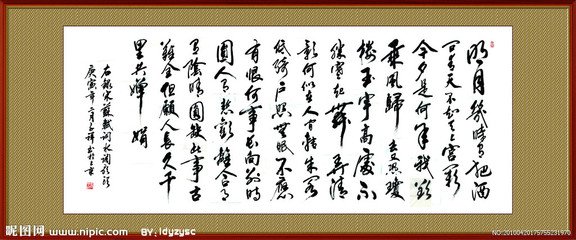 明月幾時有把酒
问青天不知天上宫阙
今夕是何年我欲
乘風歸去又恐瓊
樓玉宇高處不
勝寒起舞弄清
影何似在人间轉朱阁
低绮户照無眠不應
有恨何事長向别時
圆人有悲歡離合月
有陰晴圆缺此事古
難全但願人長久千
里共嬋娟
右録宋蘇軾詞水调歌头
庚寅年二月
昵图网
www.nipic.com BY: ldyzysc
NO:20100420175755231970